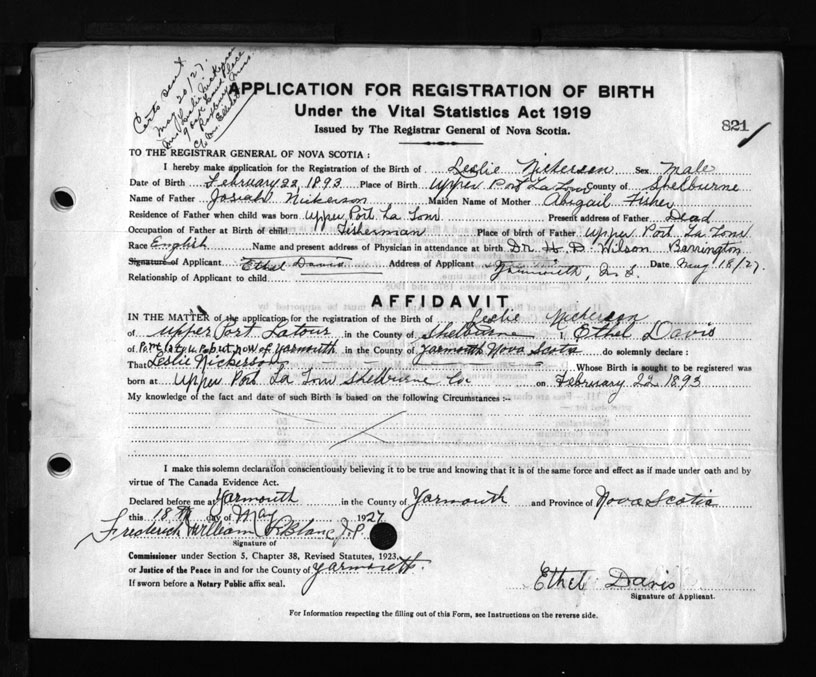 Certs sent
May 20/27.
Mrs Leslie Nickerson
Place
Roxbury, Mass
c/o Mrs.
APPLICATION FOR REGISTRATION OF BIRTH
Under the Vital Statistics Act 1919
Issued by The Registrar General of Nova Scotia.
821
TO THE REGISTRAR GENERAL OF NOVA SCOTIA :
I hereby make application for the Registration of the Birth of Leslie Nickerson Sex Male
Date of Birth February 22 1893 Place of Birth Upper Port La Tour County of Shelburne
Name of Father Josiah Nickerson Maiden Name of Mother Abigail Fisher
Residence of Father when child was born Upper Port La Tour Present address of Father Dead
Occupation of Father at Birth of child Fisherman Place of birth of Father Upper Port La Tour
Race English Name and present address of Physician in attendance at birth Dr. H. D. Wilson Barrington
Signature of Applicant Ethel Davis Address of Applicant Yarmouth, N. S. Date May 18/27.
Relationship of Applicant to child
AFFIDAVIT
IN THE MATTER of the application for the registration of the Birth of Leslie Nickerson
of Upper Port Latour in the County of Shelburne I, Ethel Davis
of but now of Yarmouth in the County of Yarmouth Nova Scotia do solemnly declare :
That Leslie Nickerson Whose Birth is sought to be registered was
born at Upper Port La Tour Shelburne Co. on February 22 1893
My knowledge of the fact and date of such Birth is based on the following Circumstances :–
I make this solemn declaration conscientiously believing it to be true and knowing that it is of the same force and effect as if made under oath and by
virtue of The Canada Evidence Act.
Declared before me at Yarmouth in the County of Yarmouth and Province of Nova Scotia
this 18th day of May 1927
Frederick William J.P.
Signature of
Commissioner under Section 5, Chapter 38, Revised Statutes, 1923,
or Justice of the Peace in and for the County of Yarmouth.
If sworn before a Notary Public affix seal.
Ethel Davis
Signature of Applicant.
For Information respecting the filling out of this Form, see Instructions on the reverse side.